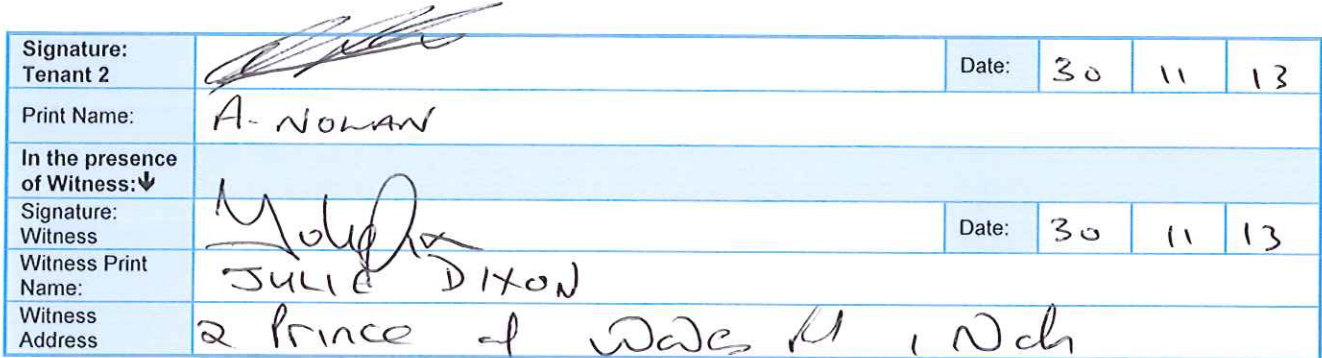 Signature: Tenant 2 Date: 30 11 13
Print Name: A. NOLAN
In the presence of Witness:
Signature: Witness Date: 30 11 13
Witness Print Name: JULIE DIXON
Witness Address 2 Prince of Wales Rd,